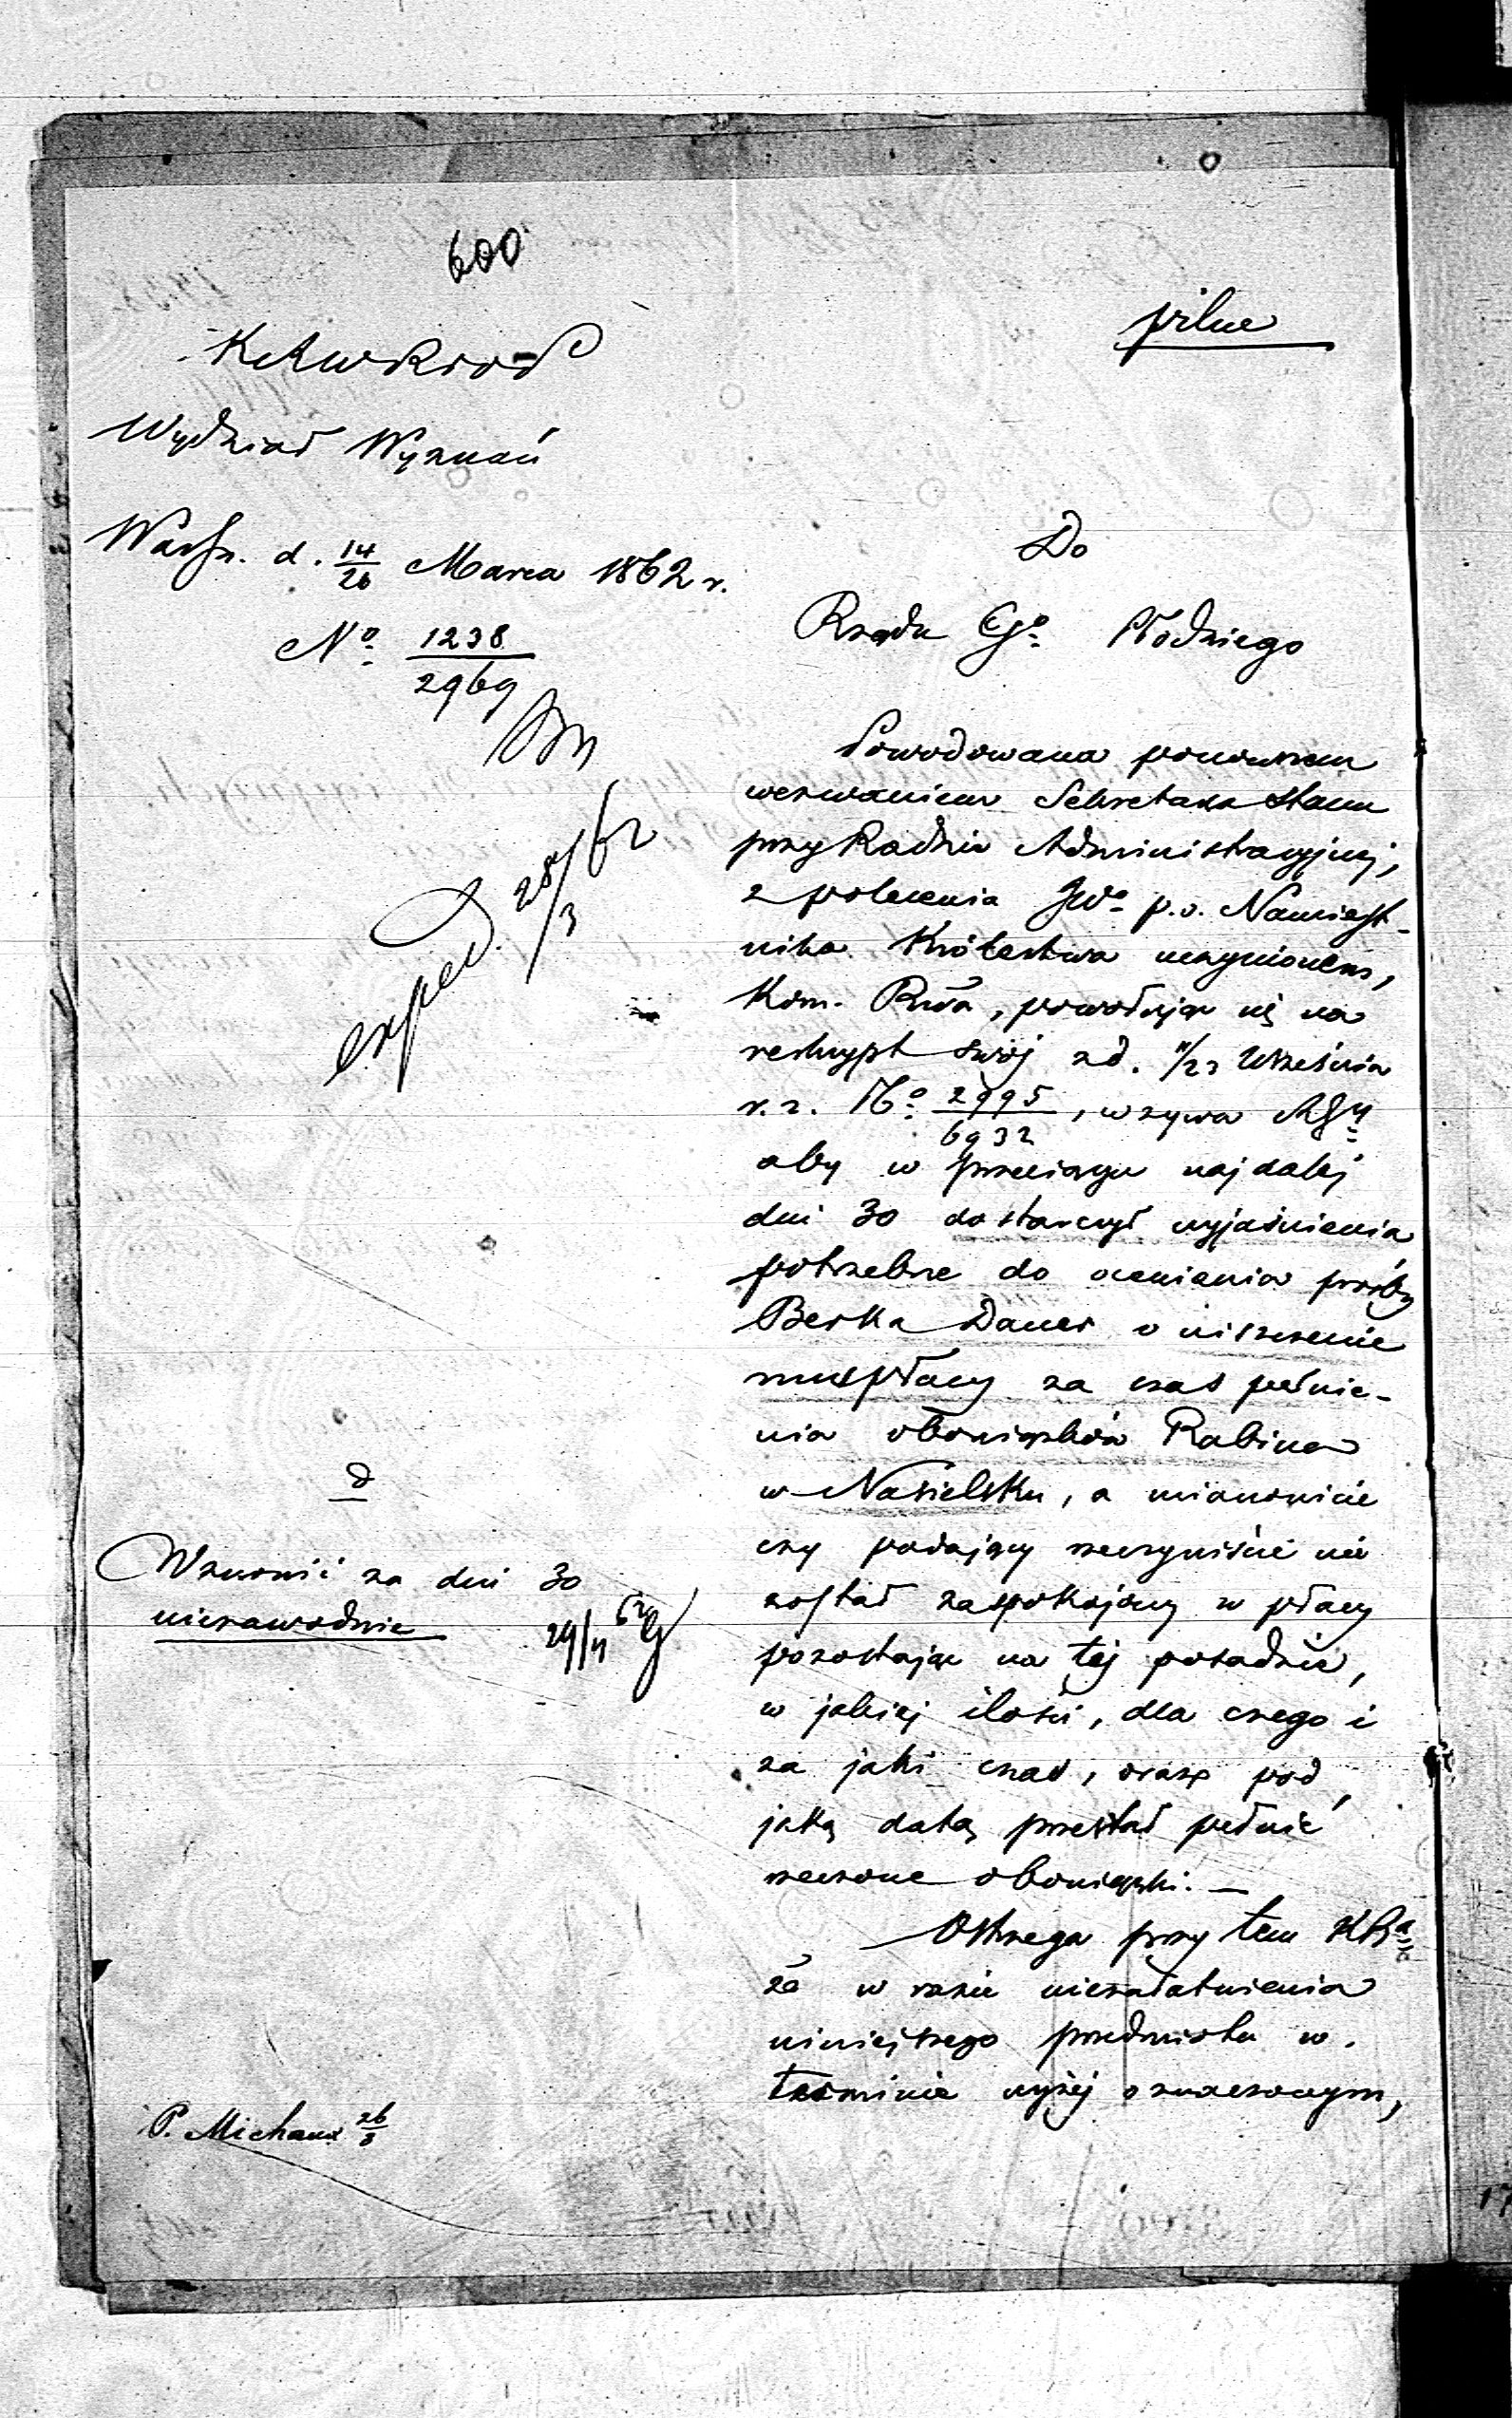 600
pilne
Wydział Wyznań
Warsz. d. 14/26 Marca 1862 r.
No. 1238/2969
exped. 28/3 62
Do
Rządu Go. Płockiego
Powodowana ponownem
wezwaniem Sekretarza Stanu
przy Radzie Administracyjnej,
z polecenia JWo. p.o. Namiest-
nika Królestwa uczynionem,
Kom. Rwa, powołując się na
reskrypt swój z d. 11/23 Września
r. z. No. 2995/6932, wzywa RGu
aby w przeciągu najdalej
dni 30 dostarczył wyjaśnienia
potrzebne do ocenienia prośby
Berka Dauer o uiszczenie
mu płacy za czas pełnie-
nia obowiązków Rabina
w Nasielsku, a mianowicie
czy podający rzeczywiście nie
został zaspokojony w płacy
pozostając na tej posadzie,
w jakiej ilości, dla czego i
za jaki czas, oraz pod
jaką datą przestał pełnić
rzeczone obowiązki. —
Ostrzega przy tem KRa
że w razie niezałatwienia
niniejszego przedmiotu w
terminie wyżej oznaczonym,
Wznowić za dni 30
niezawodnie
29/4 62
P. Michaux 26/3